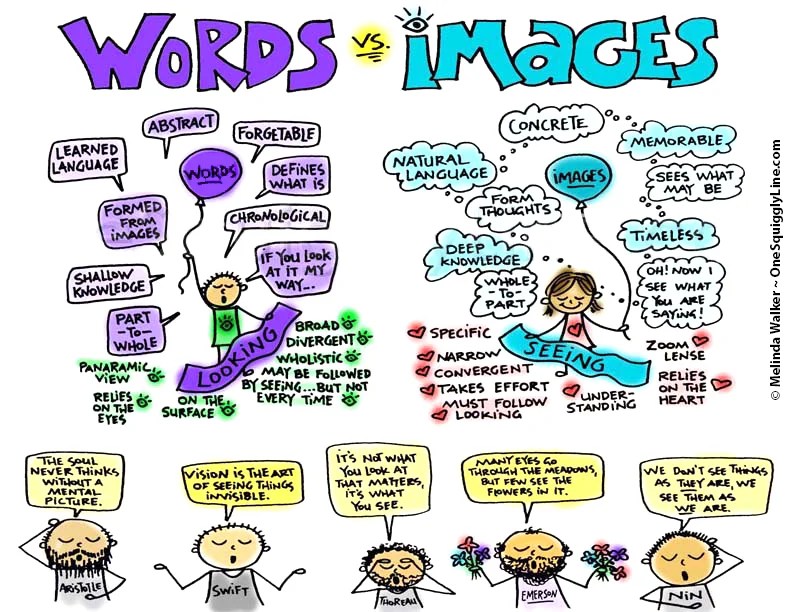 WORDS vs. iMAGES
ABSTRACT
FORGETABLE
LEARNED
LANGUAGE
WORDS
DEFINES
WHAT IS
FORMED
FROM
iMAGES
CHRONOLOGICAL
SHALLOW
KNOWLEDGE
IF YOU LOOK
AT IT MY
WAY...
PART
-TO-
WHOLE
LOOKING
PANARAMIC
VIEW
RELIES
ON THE
EYES
ON THE
SURFACE
BROAD
DIVERGENT
WHOLISTIC
MAY BE FOLLOWED
BY SEEING...BUT NOT
EVERY TIME
CONCRETE
MEMORABLE
NATURAL
LANGUAGE
iMAGES
SEES WHAT
MAY BE
FORM
THOUGHTS
TIMELESS
DEEP
KNOWLEDGE
WHOLE
-TO-
PART
OH! NOW I
SEE WHAT
YOU ARE
SAYING!
SEEING
SPECIFIC
NARROW
CONVERGENT
TAKES EFFORT
MUST FOLLOW
LOOKING
UNDER-
STANDING
ZOOM
LENSE
RELIES
ON THE
HEART
© Melinda Walker ~ OneSquigglyLine.com
THE SOUL
NEVER THINKS
WITHOUT A
MENTAL
PICTURE.
ARISTOTLE
VISION IS THE ART
OF SEEING THINGS
INVISIBLE.
SWIFT
IT'S NOT WHAT
YOU LOOK AT
THAT MATTERS,
IT'S WHAT
YOU SEE.
THOREAU
MANY EYES GO
THROUGH THE MEADOWS,
BUT FEW SEE THE
FLOWERS IN IT.
EMERSON
WE DON'T SEE THINGS
AS THEY ARE, WE
SEE THEM AS
WE ARE.
NIN